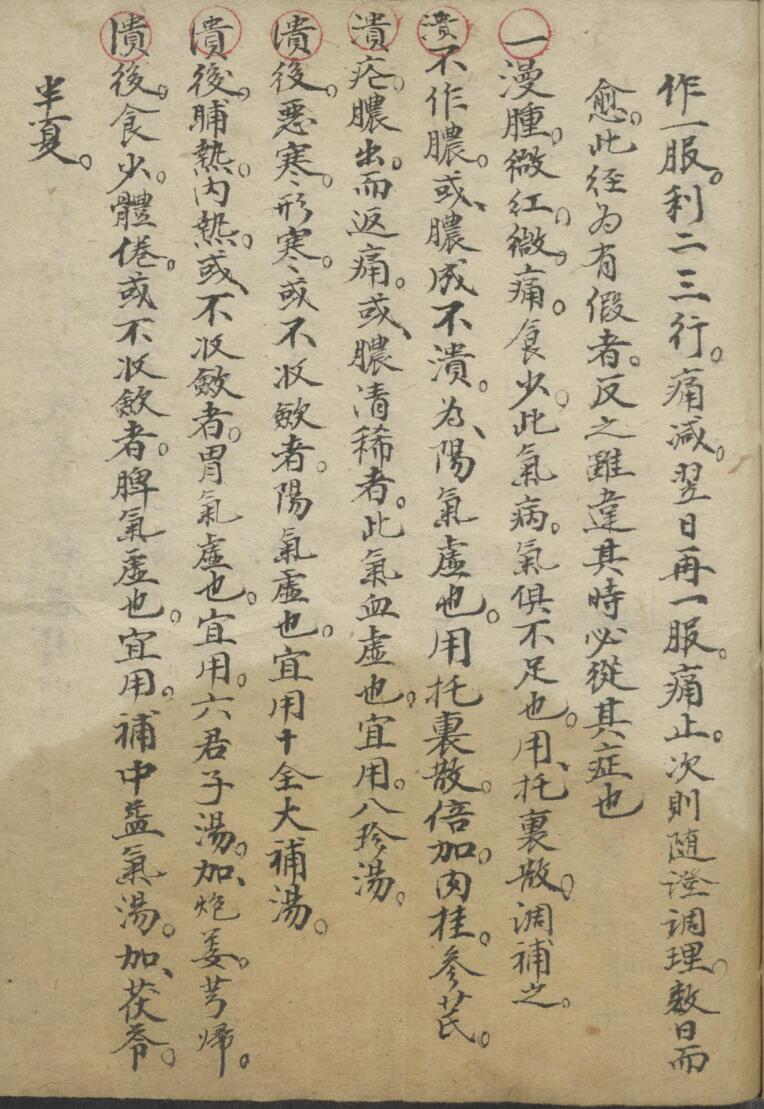 作一服。利二三行。痛減。翌日再一服。痛止。次則随澄调理。数日而
愈。此径为有假者。反之雖違其時必從其症也
一漫腫。微红。微痛。食少。此氣病。氣俱不足也。用、托裏散。调補之。
潰不作膿。或、膿成不潰。为、陽氣虛也。用托裏散。倍加。肉桂。參芪。
潰疮。膿出。而返痛。或、膿清稀者。此氣血虛也。宜用。八珍湯。
潰後。惡寒。形寒。或不收歛者。陽氣虛也。宜用十全大補湯。
潰後。脯熱。内熱。或、不收歛者。胃氣虛也。宜用。六君子湯。加、炮姜。芎歸。
潰後。食少。體倦。或不收歛者。脾氣虛也。宜用。補中益氣湯。加、茯苓。
半夏。